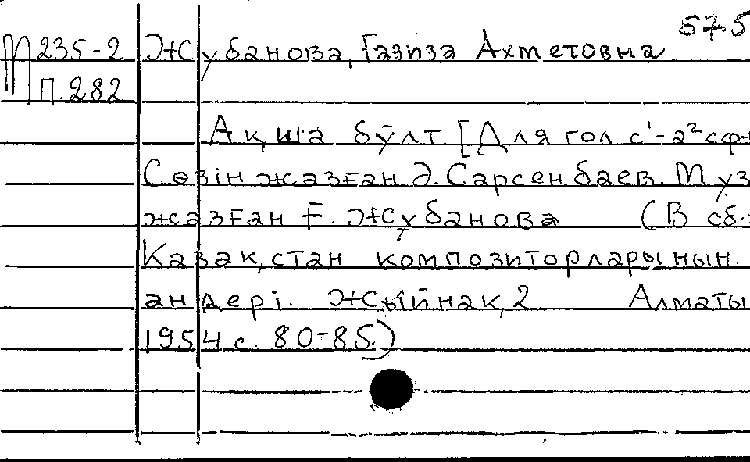 575
М 235-2 Жұбанова, Ғазиза Ахметовна
П. 282
Ақша бұлт [Для гол c¹-a² с ф-
Сөзін жазған Ә. Сарсенбаев. Муз
жазған Ғ. Жұбанова (В сб.:
Казақстан композиторларынын.
әндері. Жыйнақ, 2 Алматы
1954 с. 80-85.)